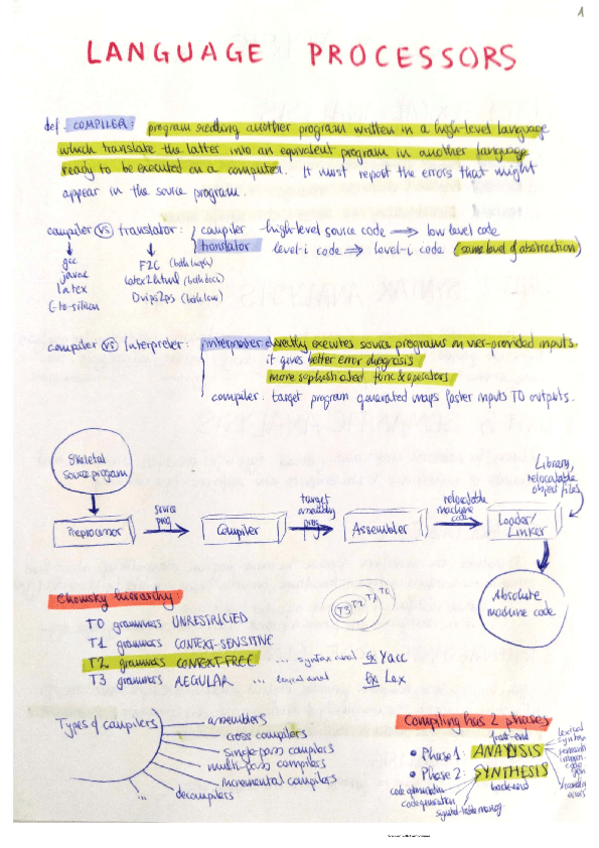 1
LANGUAGE PROCESSORS
def. COMPILER: program reading another program written in a high-level language
which translate the latter into an equivalent program in another language
ready to be executed on a computer. It must report the errors that might
appear in the source program.
compiler vs translator: compiler high-level source code → low level code
translator level-i code → level-i code (same level of abstraction)
gcc
javac
latex
C-to-silicon
F2C (both high)
latex2html (both docs)
Dvips2ps (both low)
compiler vs Interpreter: interpreter directly executes source programs on user-provided inputs.
it gives better error diagnosis
more sophisticated func & operators
compiler: target program generated maps faster inputs TO outputs.
Skeletal
source program
Library,
relocatable
object files
source
prog
target
assembly
prog
relocatable
machine
code
Preprocessor
Compiler
Assembler
Loader/
Linker
Absolute
machine code
Chomsky hierarchy:
T3 T2 T1 T0
T0 grammars UNRESTRICTED
T1 grammars CONTEXT-SENSITIVE
T2 grammars CONTEXT-FREE ... syntax anal Ex Yacc
T3 grammars REGULAR ... lexical anal Ex Lex
Types of compilers
assemblers
cross compilers
single-pass compilers
multi-pass compilers
incremental compilers
decompilers
...
Compiling has 2 phases
front-end
• Phase 1: ANALYSIS
• Phase 2: SYNTHESIS
back-end
lexical
syntax
code
gen
errors
code optimization
code generation
symbol-table manag